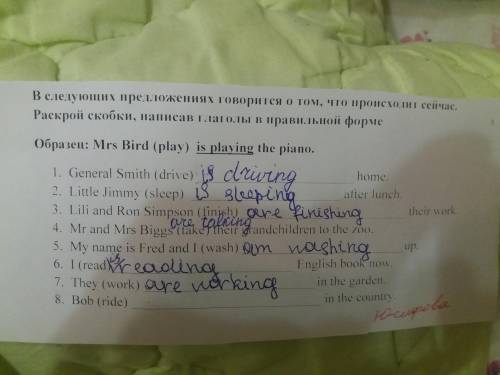 В следующих предложениях говорится о том, что происходит сейчас.
Раскрой скобки, написав глаголы в правильной форме
Образец: Mrs Bird (play) is playing the piano.
1. General Smith (drive) is driving home.
2. Little Jimmy (sleep) is sleeping after lunch.
3. Lili and Ron Simpson (finish) are finishing their work.
are taking
4. Mr and Mrs Biggs (take) their grandchildren to the zoo.
5. My name is Fred and I (wash) am washing up.
6. I (read) reading English book now.
7. They (work) are working in the garden.
8. Bob (ride) in the country.